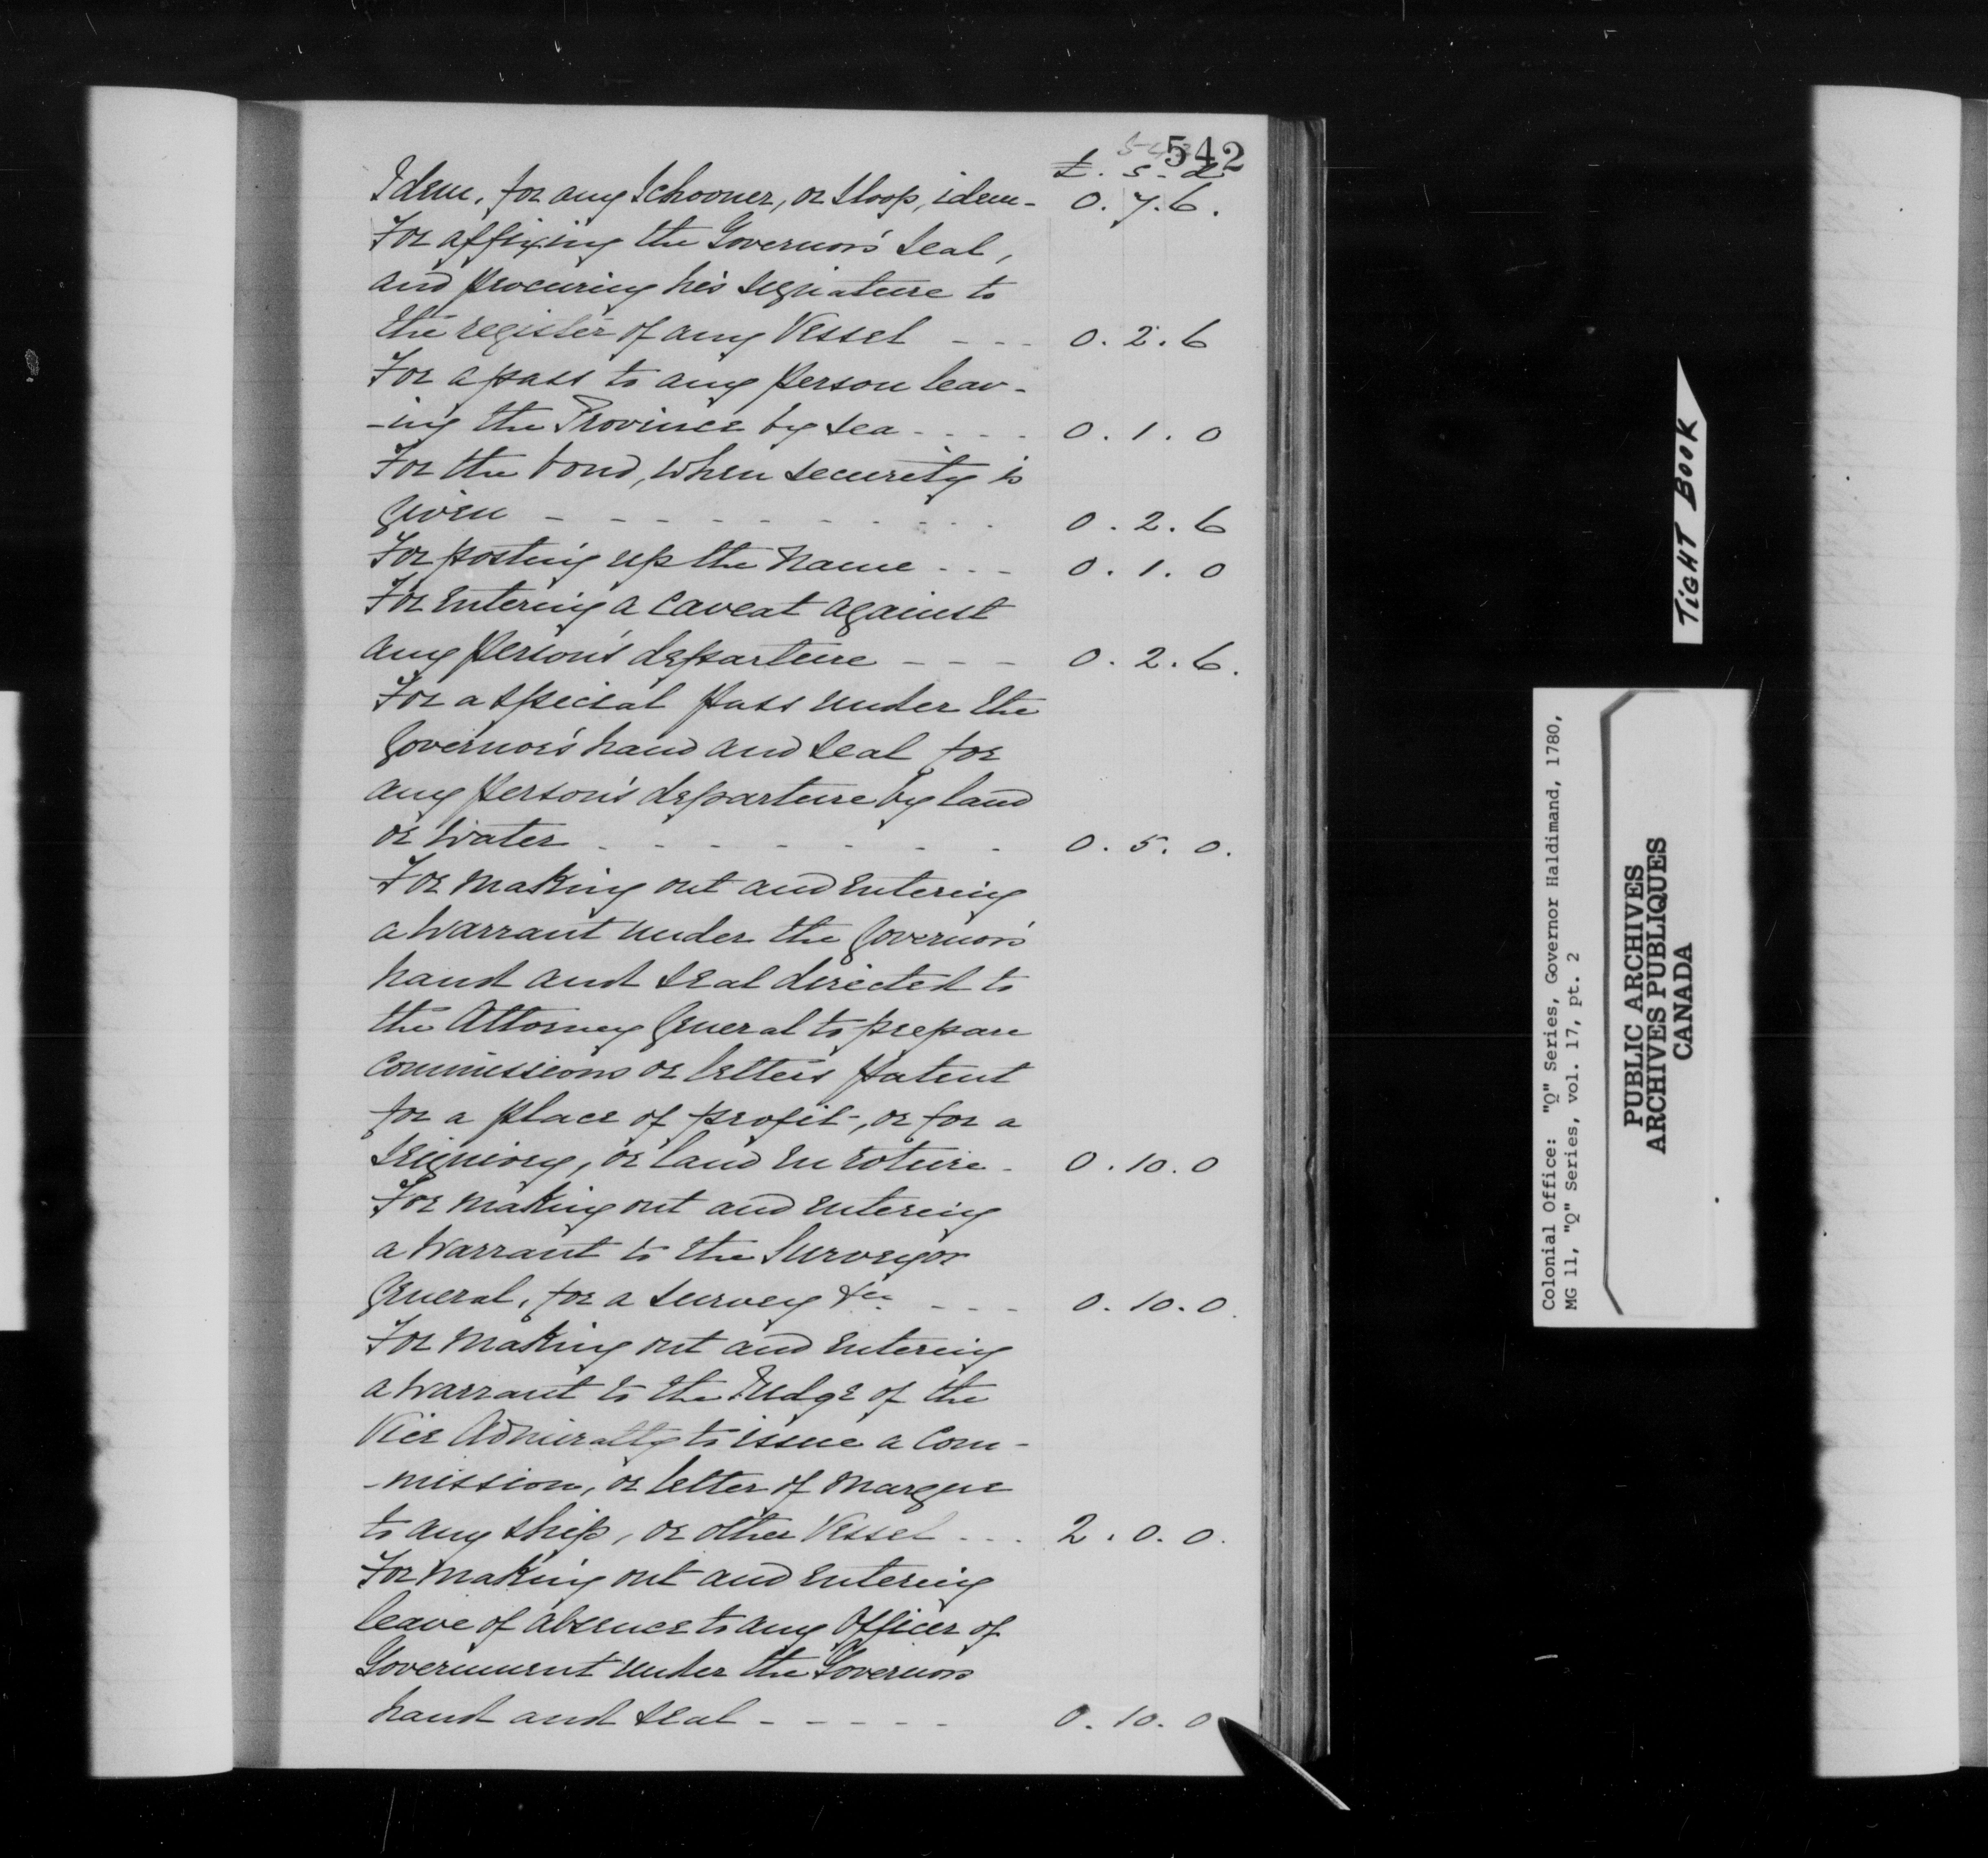 542
£. s. d
Idem, for any Schooner, or Sloop, idem - 0. 7. 6.
For affixing the Governor's Seal,
and procuring his signature to
the register of any Vessel - - - 0. 2. 6
For a pass to any person leav-
-ing the Province by sea - - - - 0. 1. 0
For the bond, when security is
given - - - - - - - - - - - 0. 2. 6
For posting up the Name - - - 0. 1. 0
For entering a caveat against
any person's departure - - - 0. 2. 6.
For a special pass under the
Governor's hand and seal for
any person's departure by land
or water - - - - - - - - 0. 5. 0.
For making out and entering
a warrant under the Governor's
hand and seal directed to
the Attorney General to prepare
commissions or letters patent
for a place of profit, or for a
Seigniory, or land en roture - 0. 10. 0
For making out and entering
a warrant to the Surveyor
General, for a survey &ca - - - 0. 10. 0.
For making out and entering
a warrant to the Judge of the
Vice Admiralty to issue a Com-
-mission, or letter of marque
to any ship, or other Vessel - - - 2. 0. 0.
For making out and entering
leave of absence to any Officer of
Government under the Governors
hand and seal - - - - - 0. 10. 0
TIGHT BOOK
Colonial Office: "Q" Series, Governor Haldimand, 1780,
MG 11, "Q" Series, vol. 17, pt. 2
PUBLIC ARCHIVES
ARCHIVES PUBLIQUES
CANADA